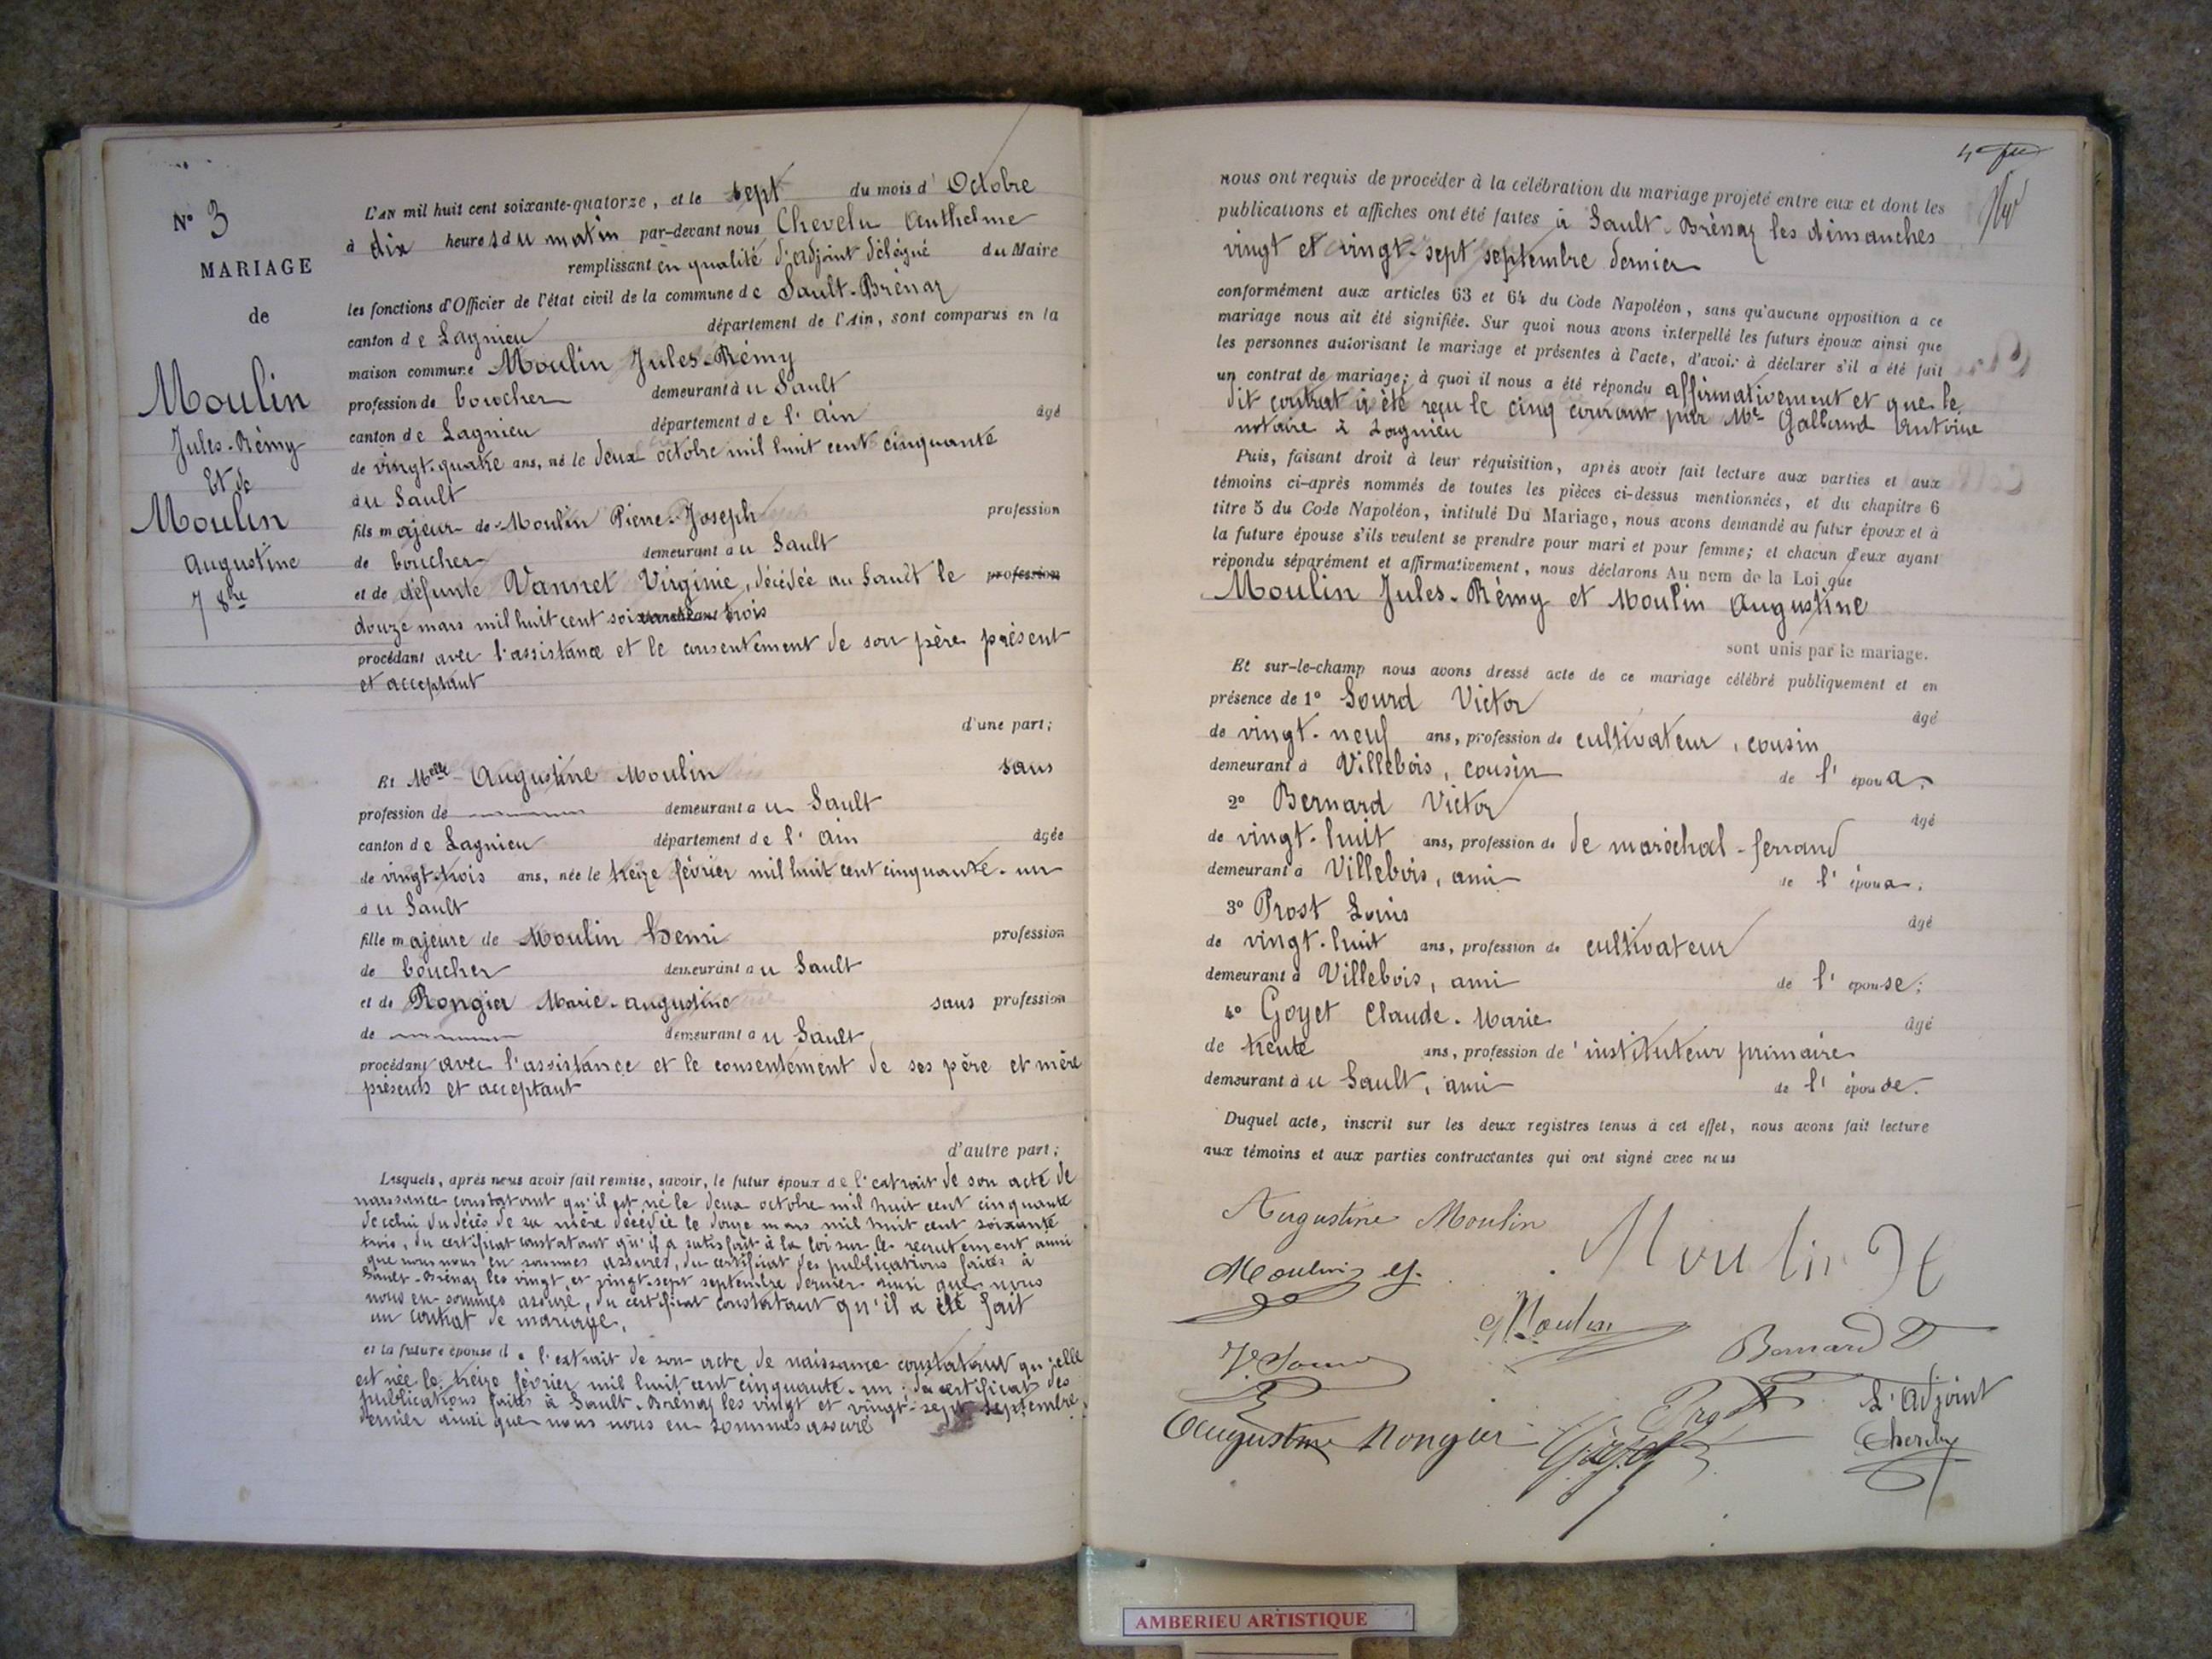 N° 3
MARIAGE
de
Moulin
Jules-Rémy
Et de
Moulin
Augustine
7 8bre
L'AN mil huit cent soixante-quatorze, et le sept du mois d' Octobre
à dix heures du matin par-devant nous Chevelu Anthelme
remplissant en qualité d'adjoint délégué du Maire
les fonctions d'Officier de l'état civil de la commune de Sault-Brénaz
canton de Lagnieu département de l'Ain, sont comparus en la
maison commune Moulin Jules-Rémy
profession de boucher demeurant à u Sault
canton de Lagnieu département de l' Ain âgé
de vingt-quatre ans, né le deux octobre mil huit cent cinquante
à u Sault
fils majeur de Moulin Pierre-Joseph profession
de boucher demeurant à u Sault
et de défunte Vannet Virginie, décédée au Sault le profession
douze mars mil huit cent soixante trois
procédant avec l'assistance et le consentement de son père présent
et acceptant
d'une part;
Et Melle Augustine Moulin sans
profession de demeurant à u Sault
canton de Lagnieu département de l' Ain âgée
de vingt-trois ans, née le treize février mil huit cent cinquante-un
à u Sault
fille majeure de Moulin Henri profession
de boucher demeurant à u Sault
et de Rongier Marie-Augustine sans profession
de demeurant à u Sault
procédant avec l'assistance et le consentement de ses père et mère
présents et acceptant
d'autre part;
Lesquels, après nous avoir fait remise, savoir, le futur époux de l'extrait de son acte de
naissance constatant qu'il est né le deux octobre mil huit cent cinquante
de celui du décès de sa mère décédée le douze mars mil huit cent soixante
trois, du certificat constatant qu'il a satisfait à la loi sur le recrutement ainsi
que nous nous en sommes assurés, du certificat des publications faites à
Sault-Brénaz les vingt et vingt-sept septembre dernier ainsi que nous
nous en sommes assuré, du certificat constatant qu'il a été fait
un contrat de mariage.
et la future épouse d e l'extrait de son acte de naissance constatant qu'elle
est née le treize février mil huit cent cinquante-un; du certificat des
publications faites à Sault-Brénaz les vingt et vingt-sept septembre
dernier ainsi que nous nous en sommes assuré
nous ont requis de procéder à la célébration du mariage projeté entre eux et dont les
publications et affiches ont été faites à Sault-Brénaz les dimanches
vingt et vingt-sept septembre dernier
conformément aux articles 63 et 64 du Code Napoléon, sans qu'aucune opposition à ce
mariage nous ait été signifiée. Sur quoi nous avons interpellé les futurs époux ainsi que
les personnes autorisant le mariage et présentes à l'acte, d'avoir à déclarer s'il a été fait
un contrat de mariage; à quoi il nous a été répondu affirmativement et que le
dit contrat a été reçu le cinq courant par Me Galland Antoine
notaire à Lagnieu
Puis, faisant droit à leur réquisition, après avoir fait lecture aux parties et aux
témoins ci-après nommés de toutes les pièces ci-dessus mentionnées, et du chapitre 6
titre 5 du Code Napoléon, intitulé Du Mariage, nous avons demandé au futur époux et à
la future épouse s'ils veulent se prendre pour mari et pour femme; et chacun d'eux ayant
répondu séparément et affirmativement, nous déclarons Au nom de la Loi que
Moulin Jules-Rémy et Moulin Augustine
sont unis par le mariage.
Et sur-le-champ nous avons dressé acte de ce mariage célébré publiquement et en
présence de 1° Sourd Victor âgé
de vingt-neuf ans, profession de cultivateur, cousin
demeurant à Villebois, cousin de l' époux;
2° Bernard Victor âgé
de vingt-huit ans, profession de de maréchal-ferrand
demeurant à Villebois, ami de l' époux;
3° Prost Louis âgé
de vingt-huit ans, profession de cultivateur
demeurant à Villebois, ami de l' épouse;
4° Goyet Claude-Marie âgé
de trente ans, profession de instituteur primaire
demeurant à u Sault, ami de l' épouse.
Duquel acte, inscrit sur les deux registres tenus à cet effet, nous avons fait lecture
aux témoins et aux parties contractantes qui ont signé avec nous
Augustine Moulin
Moulin H
Moulin
Moulin
Bernard V
V. Sourd
Prost
L'Adjoint
Augustine Rongier
Goyet
Chevelu
AMBERIEU ARTISTIQUE